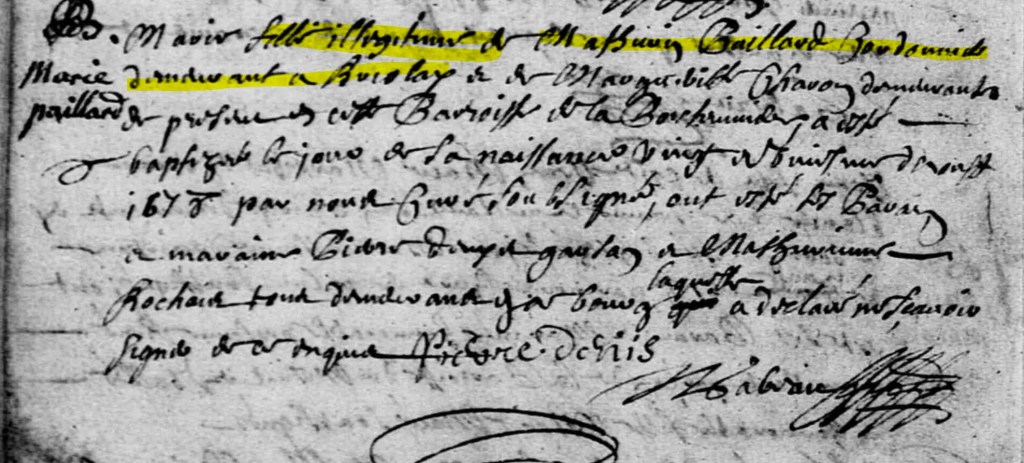 B. Marie fille illegitime de Mathurin Paillard Cordonnier
Marie demeurant a et de Marguerite Charon demeurante
paillard de present en cette Parroisse de la a esté
baptizée le jour de sa naissance vingt et huitiesme d'aoust
167 par nous Curé soubsigné, ont esté les Parain
et maraine Pierre garson et Mathurinne
Rochais tous demeurants en ce bourg laquelle a declaré ne scavoir
signer de ce enquise Pierre denis